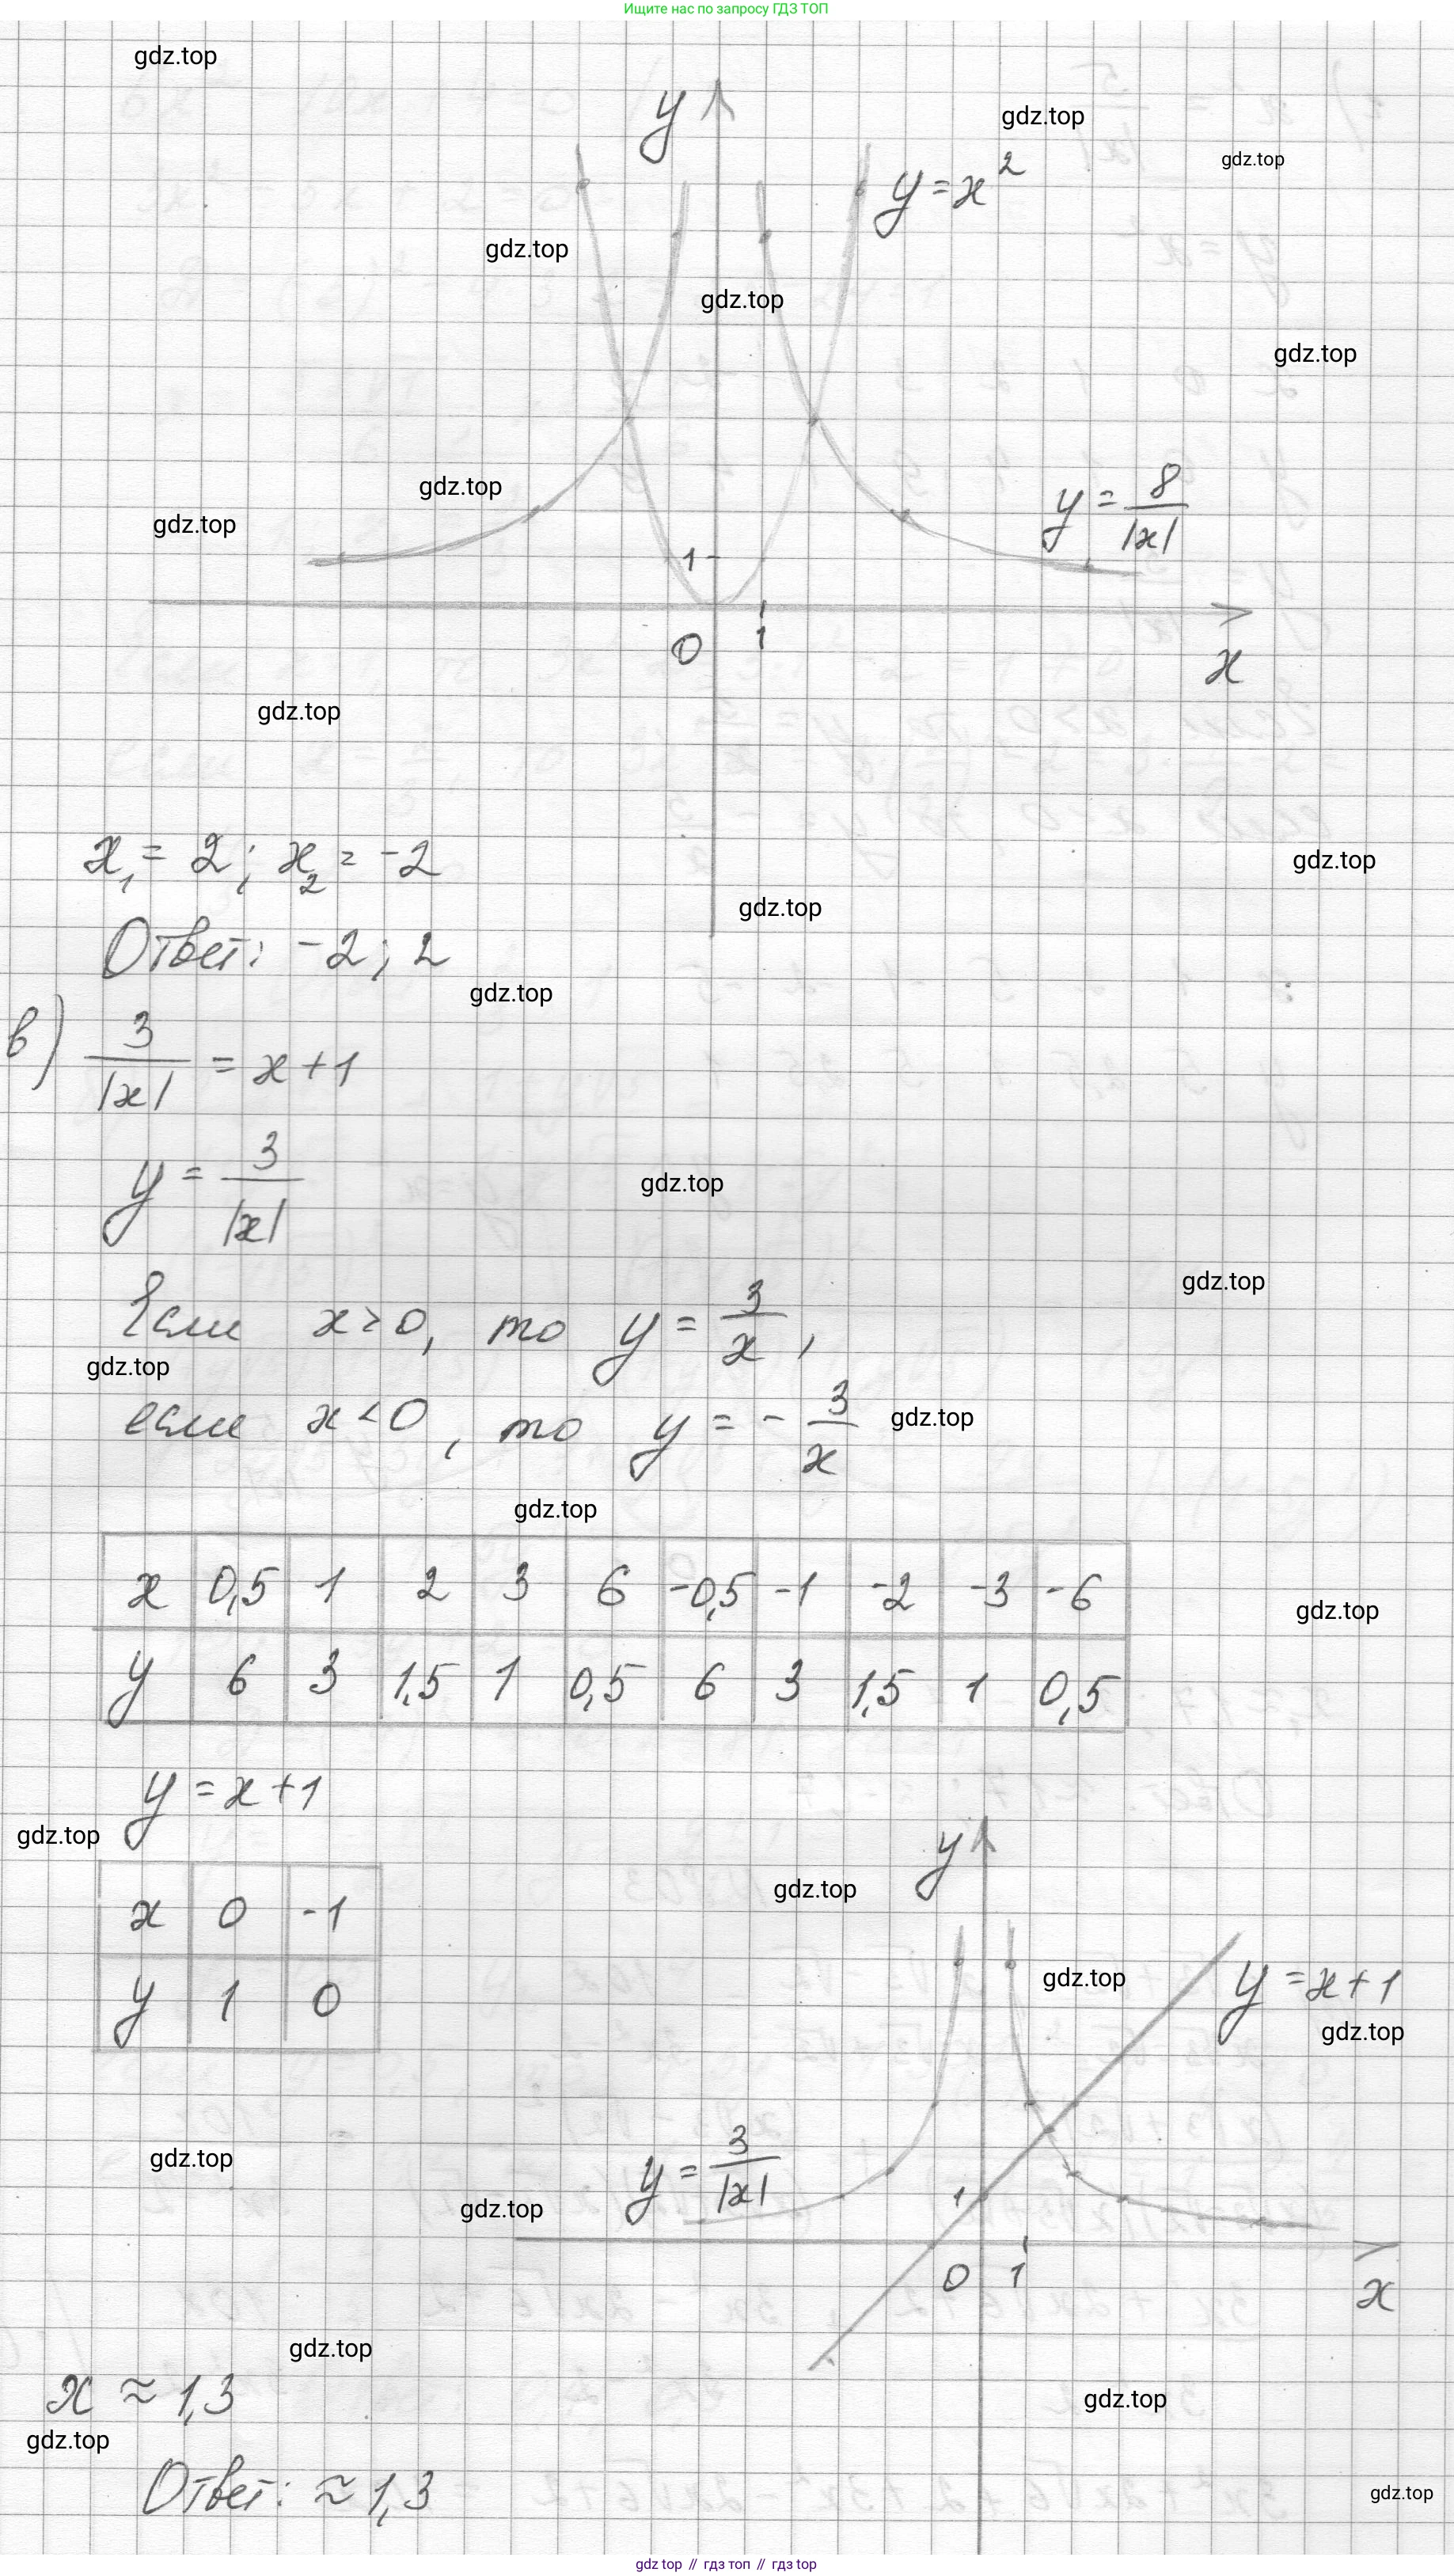 Ищите нас по запросу ГДЗ ТОП
gdz.top
y
gdz.top
gdz.top
y = x²
gdz.top
gdz.top
gdz.top
gdz.top
gdz.top
y = 8/|x|
1
0 1
x
gdz.top
x₁ = 2; x₂ = -2
gdz.top
gdz.top
Ответ: -2; 2
gdz.top
в) 3/|x| = x + 1
y = 3/|x|
gdz.top
gdz.top
Если x > 0, то y = 3/x,
gdz.top
если x < 0, то y = - 3/x
gdz.top
gdz.top
x 0,5 1 2 3 6 -0,5 -1 -2 -3 -6
gdz.top
y 6 3 1,5 1 0,5 6 3 1,5 1 0,5
y = x + 1
gdz.top
y
gdz.top
x 0 -1
y 1 0
gdz.top
y = x + 1
gdz.top
gdz.top
y = 3/|x|
gdz.top
1
0 1
x
gdz.top
x ≈ 1,3
gdz.top
gdz.top
Ответ: ≈ 1,3
gdz.top
gdz top // гдз топ // гдз top